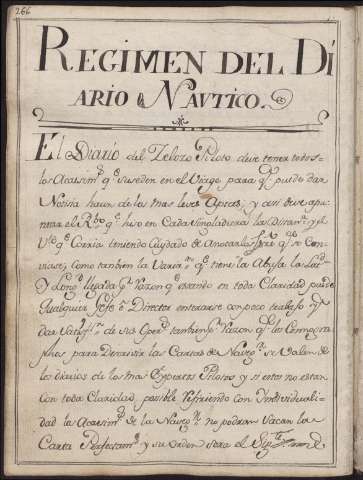 266
REGIMEN DEL DI
ARIO NAVTICO.
El Diario del Zelozo Piloto deve tener todos
los Acaesimos. qe. suseden en el Viage para qe. puede dar
Notisia haun de las mas leves Cosas, y asi deve apu
ntar el Rbo. qe. hiso en Cada Singladura las Distans. y el
Vto. qe. Corria teniendo Cuydado de Anotar los qe. se Con
viniere, como tambien la Varian. qe. tiene la Abuja la Latd.
y Longd. llegada Pr. Razon qe. estando en toda Claridad puede
Qualquier Gefe ô Director enterarse con poco trabajo y
dar Satisfn. de sus Operas. tambien Pr. Razon qe. los Cosmogra
phos, para Demostrar las Cartas de Navegon. se Valen de
los diarios de los mas Expertos Pilotos y si estos no estan
con toda Claridad, posible Refiriendo con Indeviduali
dad los Acaesimos. de la Navegon. no podran Sacar la
Carta Perfectamte. y su orden sera el Sigte.